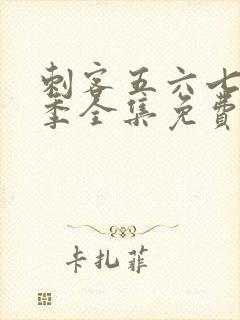 刺客五六七
季全集免费
卡扎菲